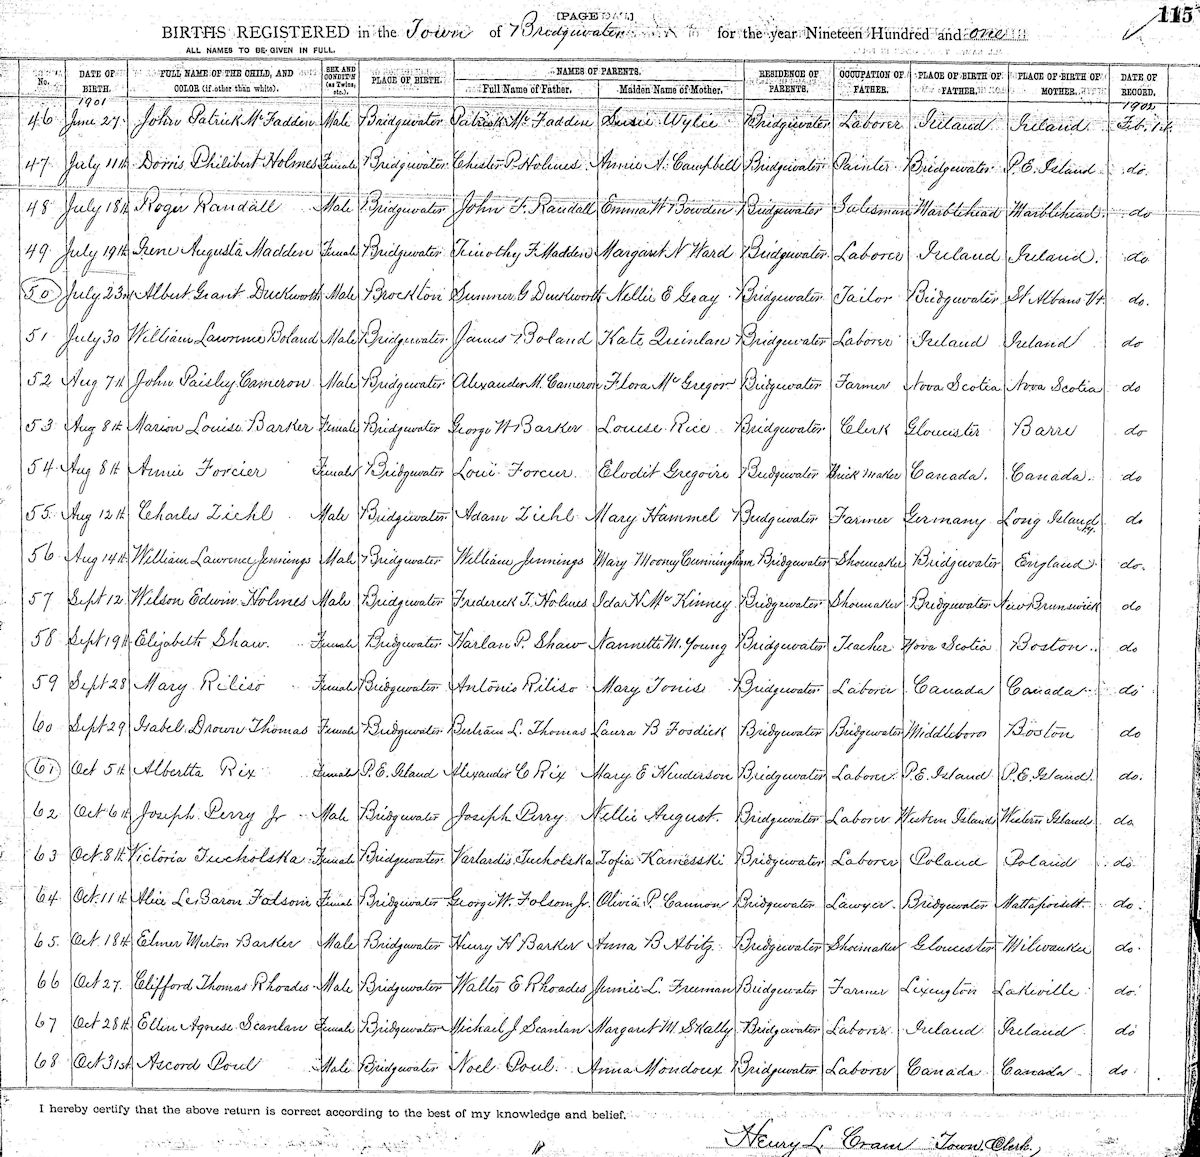 [PAGE] 115
BIRTHS REGISTERED in the Town of Bridgewater for the year Nineteen Hundred and one
ALL NAMES TO BE GIVEN IN FULL.
No. DATE OF BIRTH. FULL NAME OF THE CHILD, AND COLOR (if other than white). SEX AND CONDIT'N (as Twins, etc.). PLACE OF BIRTH. NAMES OF PARENTS. Full Name of Father. Maiden Name of Mother. RESIDENCE OF PARENTS. OCCUPATION OF FATHER. PLACE OF BIRTH OF FATHER. PLACE OF BIRTH OF MOTHER. DATE OF RECORD.
1901 1902
46 June 27. John Patrick McFadden Male Bridgewater Patrick McFadden Susie Wylie Bridgewater Laborer Ireland Ireland Feb. 1st.
47 July 11th Dorris Philibert Holmes Female Bridgewater Chester P. Holmes. Annie A. Campbell Bridgewater Painter Bridgewater P.E. Island do
48 July 18th Roger Randall Male Bridgewater John F. Randall Emma W Bowden Bridgewater Salesman Marblehead Marblehead. do
49 July 19th Irene Augusta Madden Female Bridgewater Timothy F. Madden Margaret N Ward Bridgewater Laborer Ireland Ireland. do
50 July 23rd Albert Grant Duckworth Male Brockton Sumner G Duckworth Nellie E Gray Bridgewater Tailor Bridgewater St Albans Vt. do.
51 July 30 William Lawrence Boland Male Bridgewater James Boland Kate Quinlan Bridgewater Laborer Ireland Ireland do
52 Aug 7th John Paisley Cameron Male Bridgewater Alexander M. Cameron Flora McGregor Bridgewater Farmer Nova Scotia Nova Scotia do
53 Aug 8th Marion Louise Barker Female Bridgewater George W Barker Louise Rice Bridgewater Clerk Gloucester Barre do
54 Aug 8th Annie Forcier Female Bridgewater Loui Forcier Elodit Gregoire Bridgewater Brick Maker Canada. Canada. do
55 Aug 12th Charles Ziehl Male Bridgewater Adam Ziehl Mary Hammel Bridgewater Farmer Germany Long Island N.Y. do
56 Aug 14th William Lawrence Jennings Male Bridgewater William Jennings Mary Mooney Cunningham Bridgewater Shoemaker Bridgewater England do.
57 Sept 12 Wilson Edwin Holmes Male Bridgewater Frederick T. Holmes Ida N. McKinney Bridgewater Shoemaker Bridgewater New Brunswick do
58 Sept 19th Elizabeth Shaw. Female Bridgewater Harlan P. Shaw Nannette M. Young Bridgewater Teacher Nova Scotia Boston.. do
59 Sept 28 Mary Riliso Female Bridgewater Antonio Riliso Mary Tonis Bridgewater Laborer Canada Canada do
60 Sept 29 Isabel Drown Thomas Female Bridgewater Bertram L. Thomas Laura B Fosdick Bridgewater Bridgewater Middleboro Boston do
61 Oct 5th Albertta Rix Female P.E. Island Alexander C Rix Mary E Henderson Bridgewater Laborer P.E. Island P.E. Island do.
62 Oct 6th Joseph Perry Jr Male Bridgewater Joseph Perry Nellie August. Bridgewater Laborer Western Islands Western Islands do
63 Oct. 8th Victoria Tucholska Female Bridgewater Tucholska Zofia Kamesski Bridgewater Laborer Poland Poland do
64 Oct. 11th Alice LeBaron Folsom Female Bridgewater George W. Folsom Jr. Olivia P. Cannon Bridgewater Lawyer Bridgewater Mattapoisett. do
65 Oct. 18th Elmer Merton Barker Male Bridgewater Henry H Barker Anna B Abitz Bridgewater Shoemaker Gloucester Milwaukee do
66 Oct 27. Clifford Thomas Rhoades Male Bridgewater Walter E Rhoades Jennie L. Freeman Bridgewater Farmer Lexington Lakeville do
67 Oct 28th Ellen Agnese Scanlan Female Bridgewater Michael J Scanlan Margaret M. Skally Bridgewater Laborer Ireland Ireland do
68 Oct 31st Ascord Poul Male Bridgewater Noel Poul Anna Mondoux Bridgewater Laborer Canada Canada do
I hereby certify that the above return is correct according to the best of my knowledge and belief.
Henry L. Crane Town Clerk,